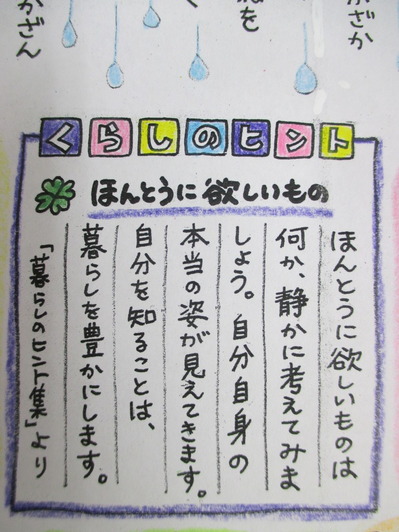 ざか
を
く
かざん
くらしのヒント
ほんとうに欲しいもの
ほんとうに欲しいものは
何か、静かに考えてみま
しょう。自分自身の
本当の姿が見えてきます。
自分を知ることは、
暮らしを豊かにします。
「暮らしのヒント集」より